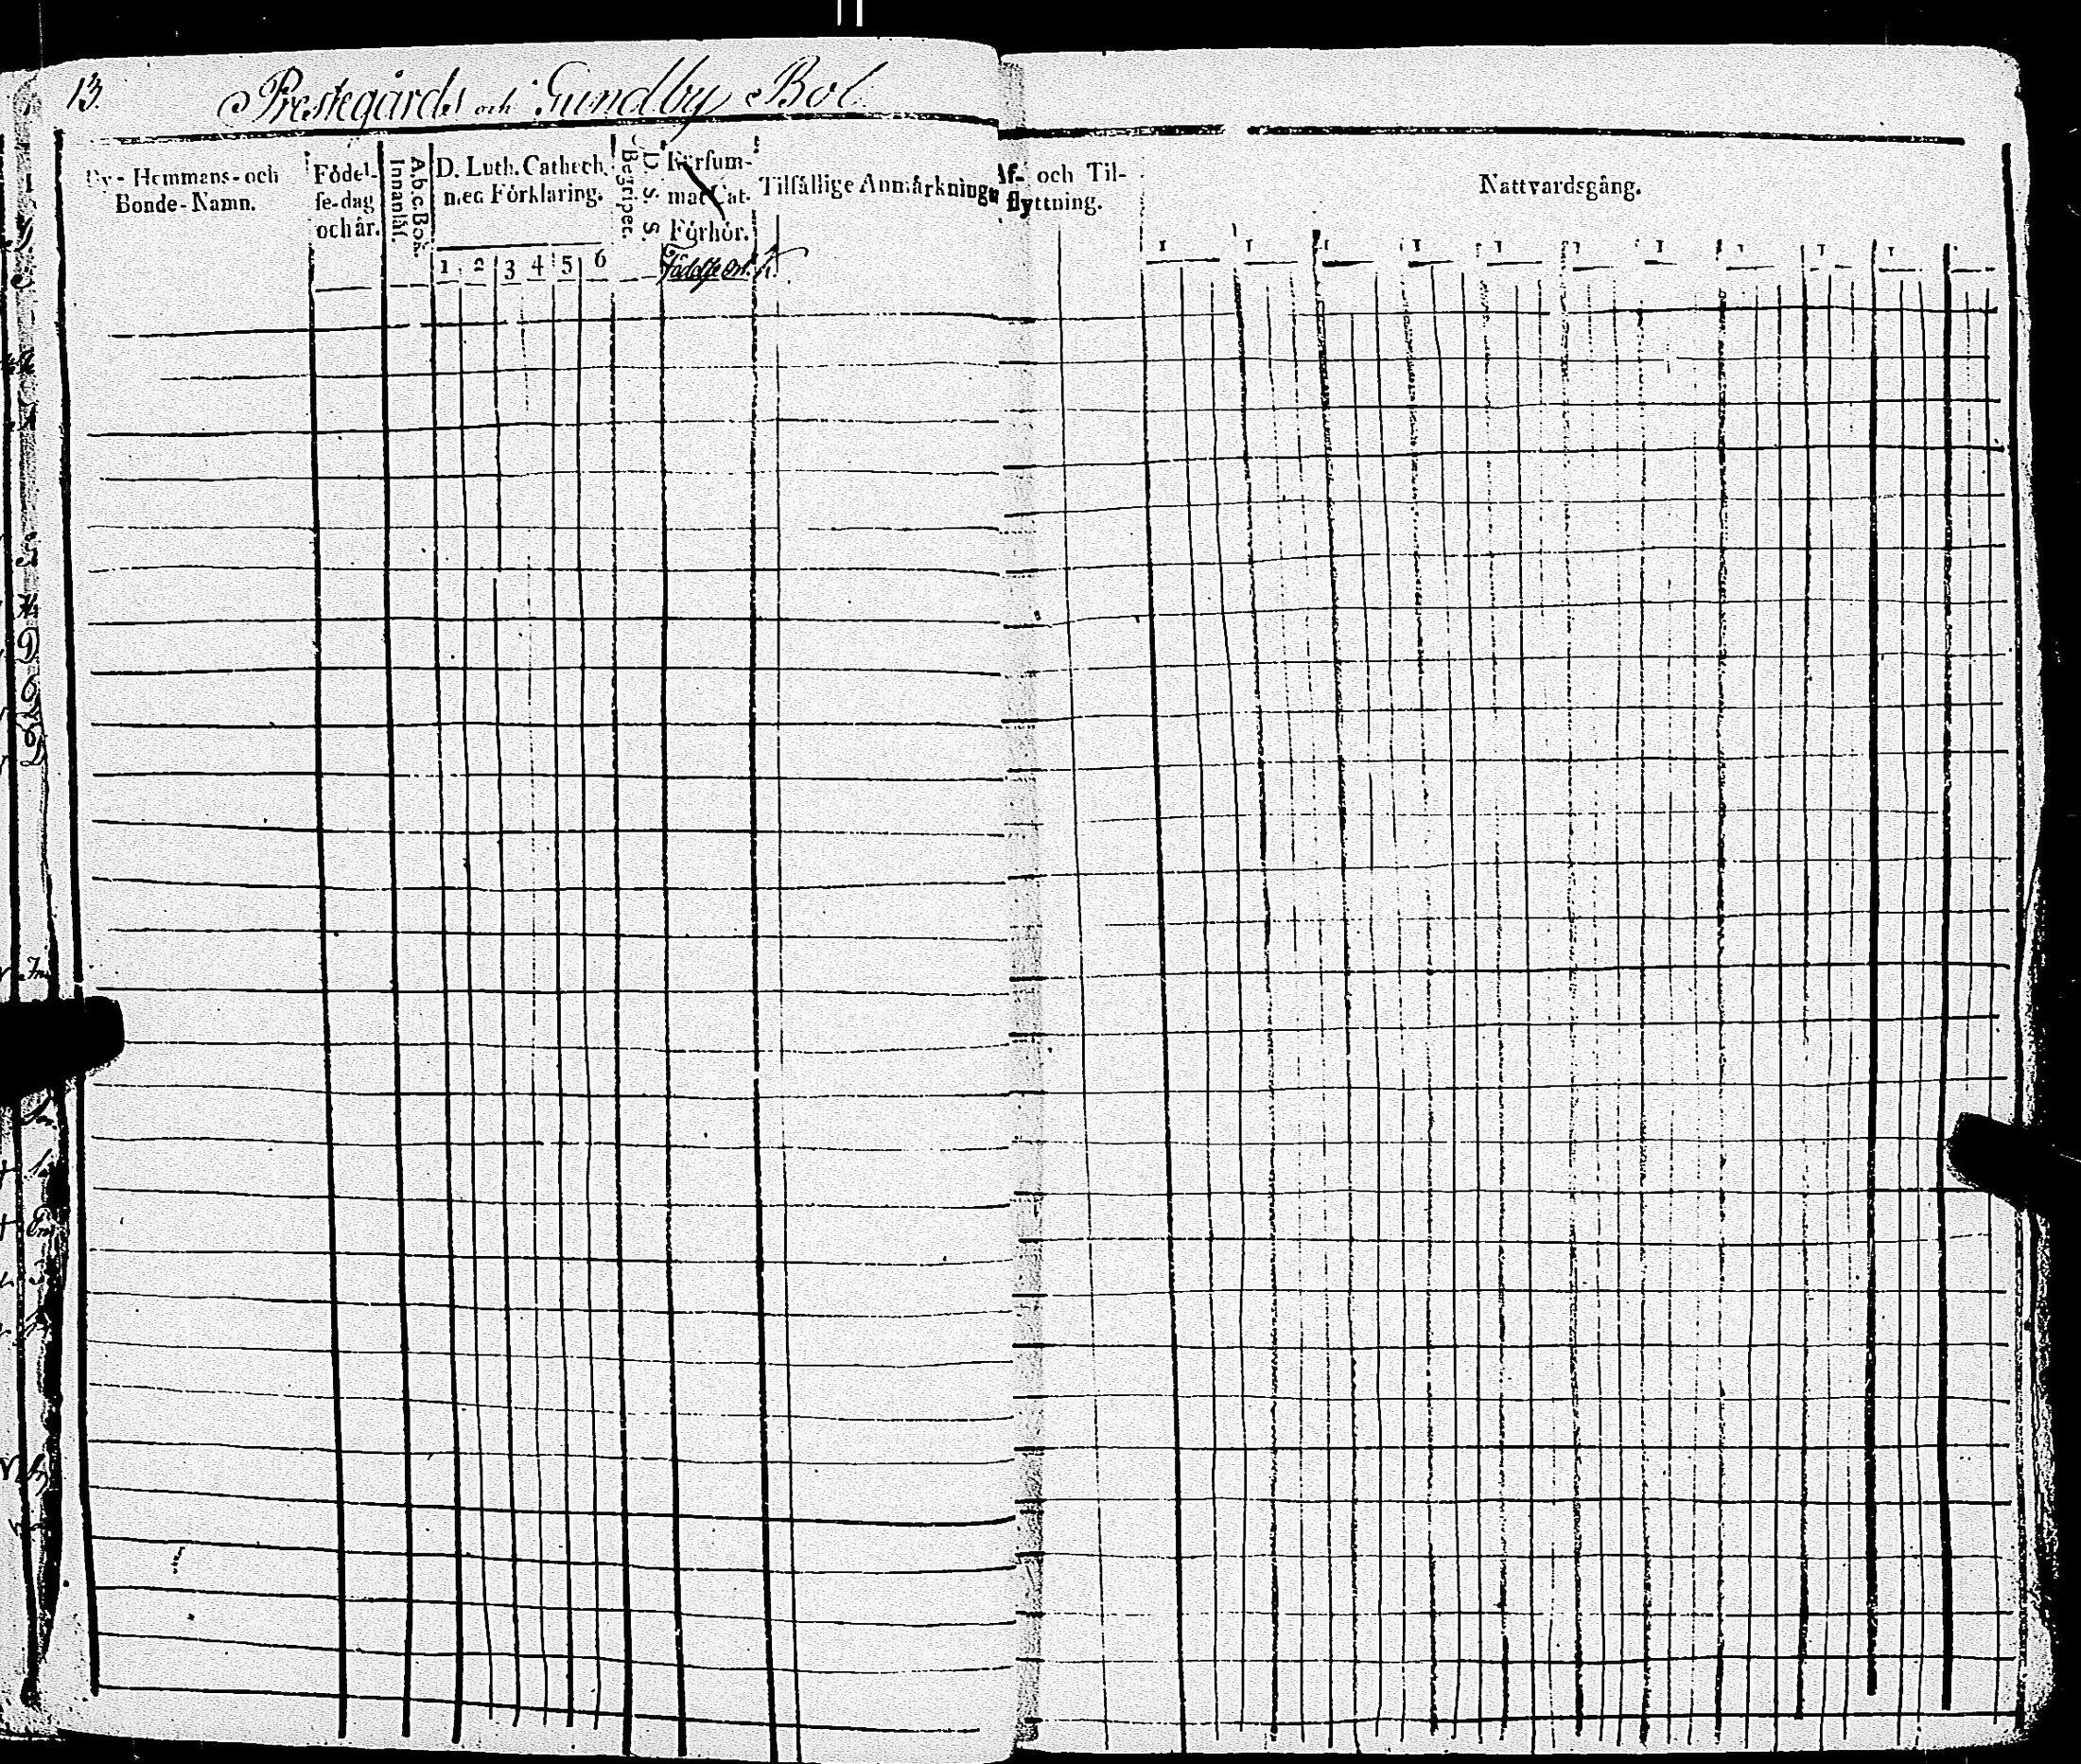 13.
Prestegårds och Gundby Bol
By- Hemmans- och
Bonde-Namn.
Födel-
se-dag
och år.
A.b.c.Bok.
Innanläs.
D. Luth. Cathech.
med Förklaring.
1 2 3 4 5 6
Begriper.
D. S. S.
Försum-
mat Cat.
Förhör.
Födelse Ort.
Tilfällige Anmärkninga
Af- och Til-
flyttning.
Nattvardsgång.
1 1 1 1 1 1 1 1 1 1